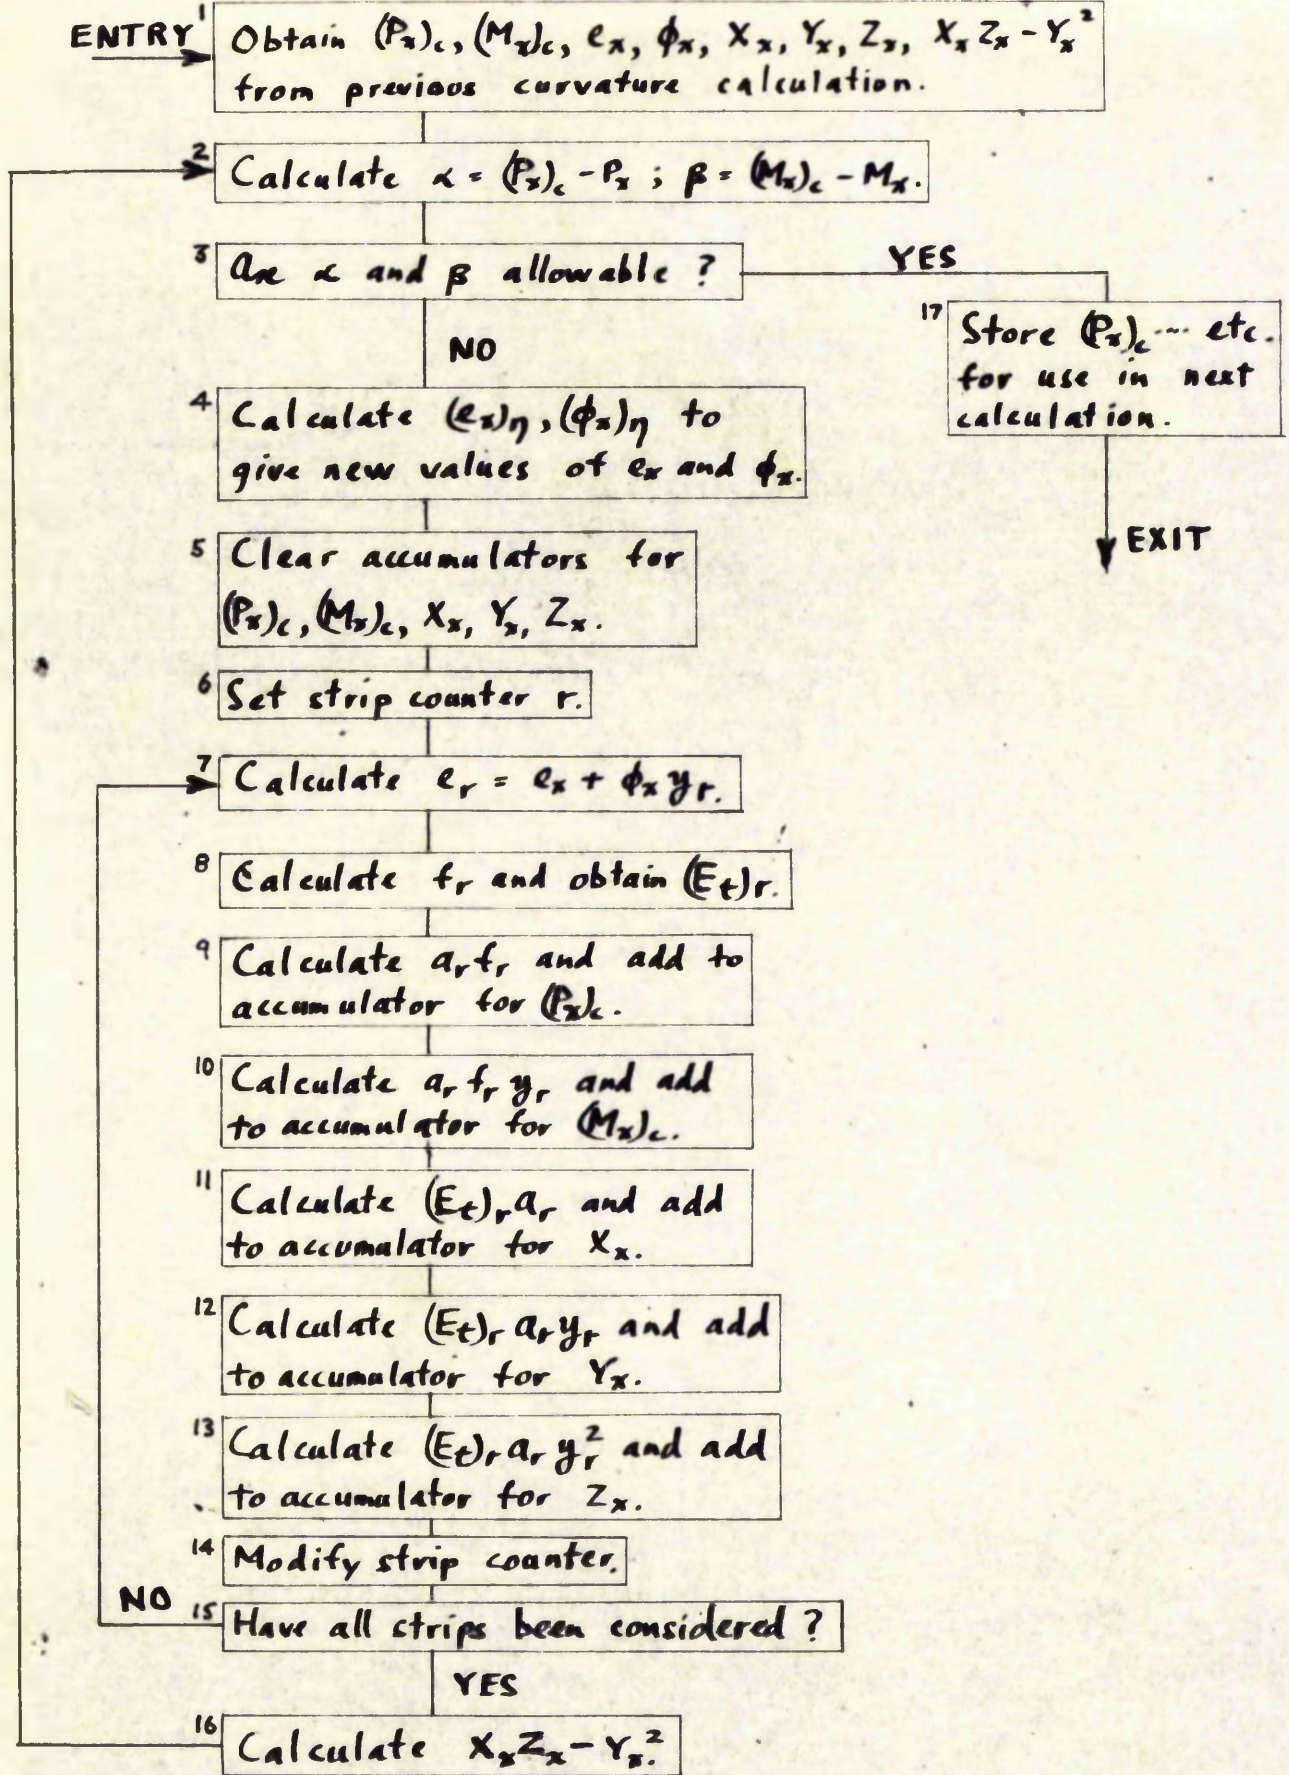 ENTRY
1
Obtain (Pₓ)c, (Mₓ)c, eₓ, ϕₓ, Xₓ, Yₓ, Zₓ, XₓZₓ - Yₓ²
from previous curvature calculation.
2
Calculate α = (Pₓ)c - Pₓ ; β = (Mₓ)c - Mₓ.
3
Are α and β allowable ?
YES
NO
17
Store (Pₓ)c ... etc.
for use in next
calculation.
EXIT
4
Calculate (eₓ)η, (ϕₓ)η to
give new values of eₓ and ϕₓ.
5
Clear accumulators for
(Pₓ)c, (Mₓ)c, Xₓ, Yₓ, Zₓ.
6
Set strip counter r.
7
Calculate eᵣ = eₓ + ϕₓ yᵣ.
8
Calculate fᵣ and obtain (Eₜ)ᵣ.
9
Calculate aᵣ fᵣ and add to
accumulator for (Pₓ)c.
10
Calculate aᵣ fᵣ yᵣ and add
to accumulator for (Mₓ)c.
11
Calculate (Eₜ)ᵣ aᵣ and add
to accumulator for Xₓ.
12
Calculate (Eₜ)ᵣ aᵣ yᵣ and add
to accumulator for Yₓ.
13
Calculate (Eₜ)ᵣ aᵣ yᵣ² and add
to accumulator for Zₓ.
14
Modify strip counter.
NO
15
Have all strips been considered ?
YES
16
Calculate XₓZₓ - Yₓ².